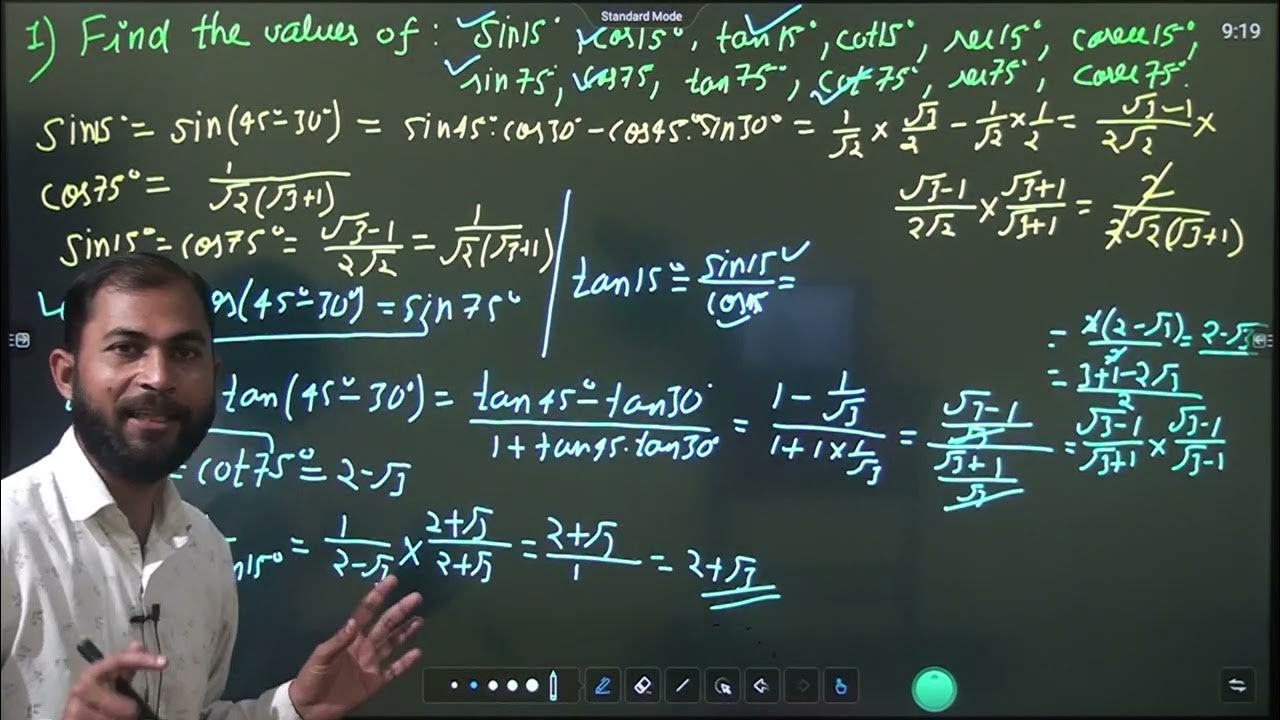 Standard Mode
9:19
1) Find the values of : sin15°, cos15°, tan15°, cot15°, sec15°, cosec15°,
sin75°, cos75, tan75°, cot75°, sec75°, cosec75°.
sin15° = sin(45°-30°) = sin45°.cos30°-cos45°.sin30° = 1/√2 × √3/2 - 1/√2 × 1/2 = √3-1/2√2 ×
cos75° = 1/√2(√3+1)
√3-1/2√2 × √3+1/√3+1 = 2/2√2(√3+1)
sin15° = cos75° = √3-1/2√2 = 1/√2(√3+1)
tan15° = sin15/cos15 =
(45°-30°) = sin75°
= 2(2-√3)/2 = 2-√3
= 3+1-2√3/2
tan(45°-30°) = tan45°-tan30°/1+tan45.tan30° = 1-1/√3/1+1×1/√3 = √3-1/√3/√3+1/√3 = √3-1/√3+1 × √3-1/√3-1
= cot75° = 2-√3
15° = 1/2-√3 × 2+√3/2+√3 = 2+√3/1 = 2+√3